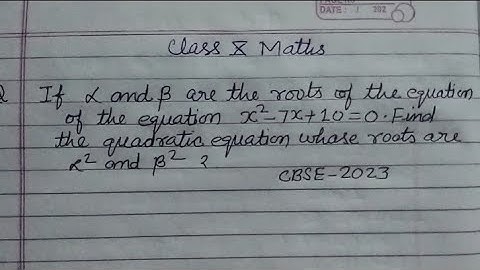 DATE: / 202
Class X Maths
Q If α and β are the roots of the equation
of the equation x²-7x+10=0. Find
the quadratic equation whose roots are
α² and β² ?
CBSE-2023